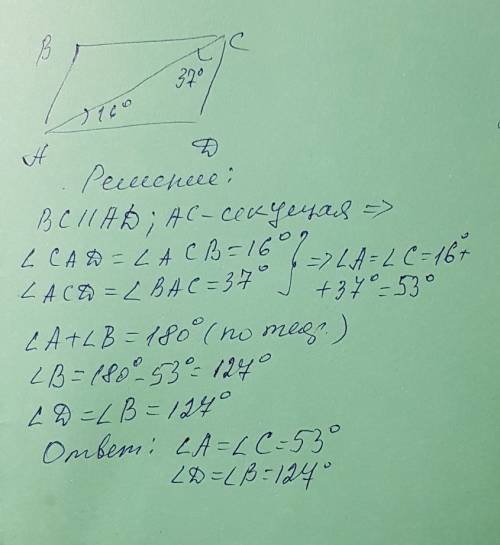 B C
37°
16°
A D
Решение:
BC||AD; AC-секущая =>
∠CAD=∠ACB=16°
∠ACD=∠BAC=37° } => ∠A=∠C=16°+
+37°=53°
∠A+∠B=180° (по теор.)
∠B=180°-53°=127°
∠D=∠B=127°
Ответ: ∠A=∠C=53°
∠D=∠B=127°